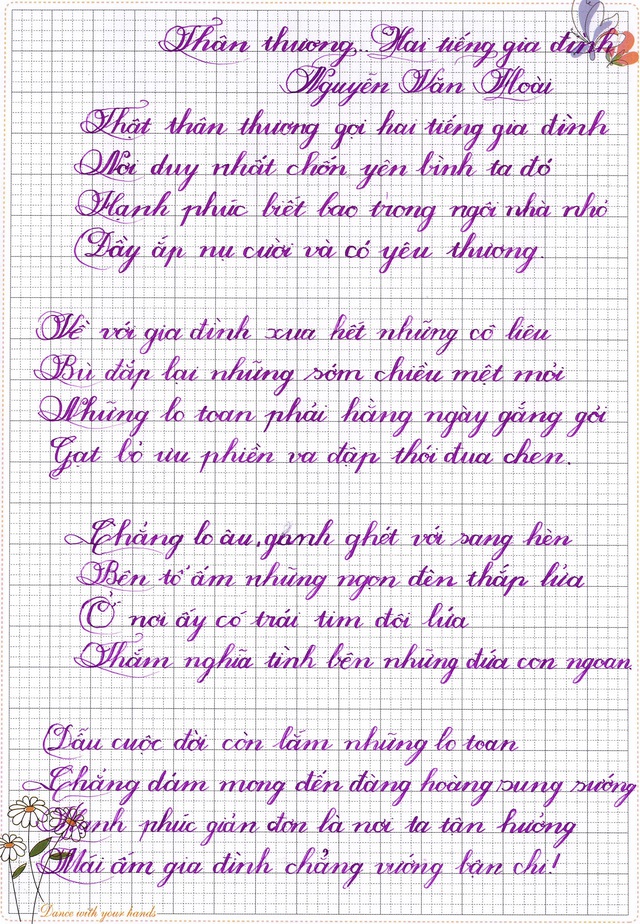 Thân thương... Hai tiếng gia đình
Nguyễn Văn Hoài
Thật thân thương gọi hai tiếng gia đình
Nơi duy nhất chốn yên bình ta đó
Hạnh phúc biết bao trong ngôi nhà nhỏ
Đầy ắp nụ cười và có yêu thương.
Về với gia đình xua hết những cô liêu
Bù đắp lại những sớm chiều mệt mỏi
Những lo toan phải hằng ngày gắng gỏi
Gạt bỏ ưu phiền va đập thói đua chen.
Chẳng lo âu, ganh ghét với sang hèn
Bên tổ ấm những ngọn đèn thắp lửa
Ở nơi ấy có trái tim đôi lứa
Thắm nghĩa tình bên những đứa con ngoan.
Dẫu cuộc đời còn lắm những lo toan
Chẳng dám mong đến đàng hoàng sung sướng
Hạnh phúc giản đơn là nơi ta tận hưởng
Mái ấm gia đình chẳng vướng bận chi!
Dance with your hands